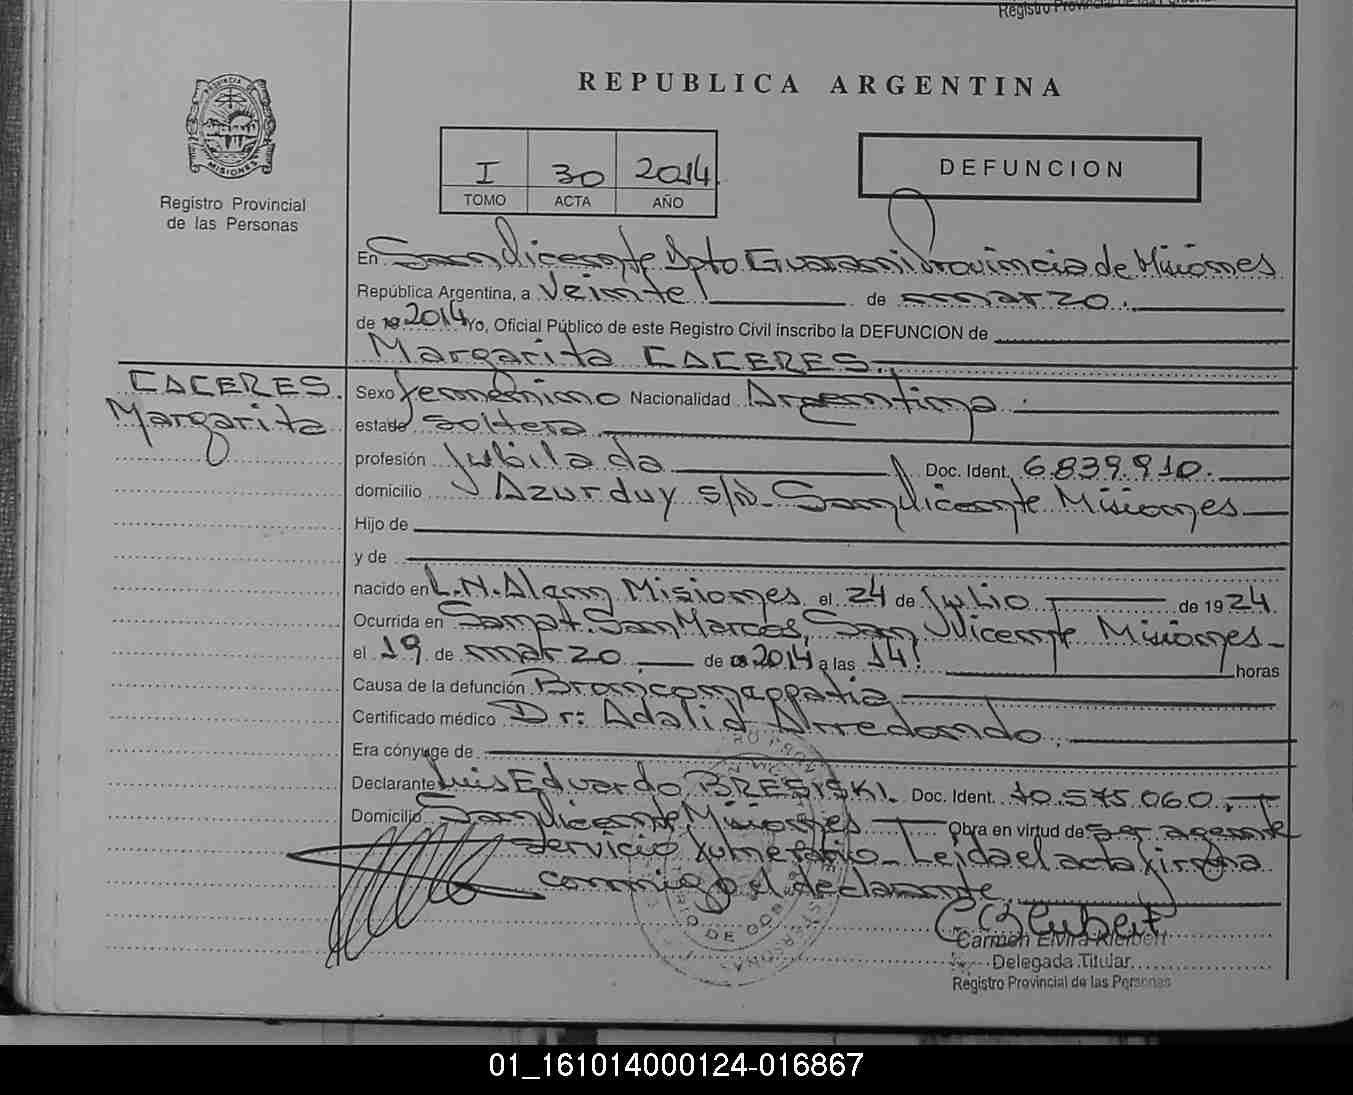 Registro Provincial de las Personas
REPUBLICA ARGENTINA
PROVINCIA DE
MISIONES
Registro Provincial
de las Personas
I 30 2014
TOMO ACTA AÑO
DEFUNCION
En San Vicente Dpto Guarani Provincia de Misiones
República Argentina, a Veinte de marzo.
de 19 2014 Yo, Oficial Público de este Registro Civil inscribo la DEFUNCION de
Margarita CACERES.
CACERES.
Margarita
Sexo femenino Nacionalidad Argentina.
estado soltera
profesión Jubilada Doc. Ident. 6.839.910.
domicilio J Azurduy s/n- San Vicente Misiones
Hijo de
y de
nacido en L.N.Alem Misiones el 24 de Julio de 1924.
Ocurrida en Sanat. San Marcos, San Vicente Misiones-
el 19 de marzo de 2014 a las 14! horas
Causa de la defunción Bronconeopatia
Certificado médico Dr: Adalid Arredondo.
Era cónyuge de
Declarante Luis Eduardo BRESISKI. Doc. Ident. 10.575.060.
Domicilio San Vicente, Misiones Obra en virtud de ser agente
servicio funerario- Leida el acta firma
conmigo el declarante.
Carmen Elvira
Delegada Titular
Registro Provincial de las Personas
01_161014000124-016867